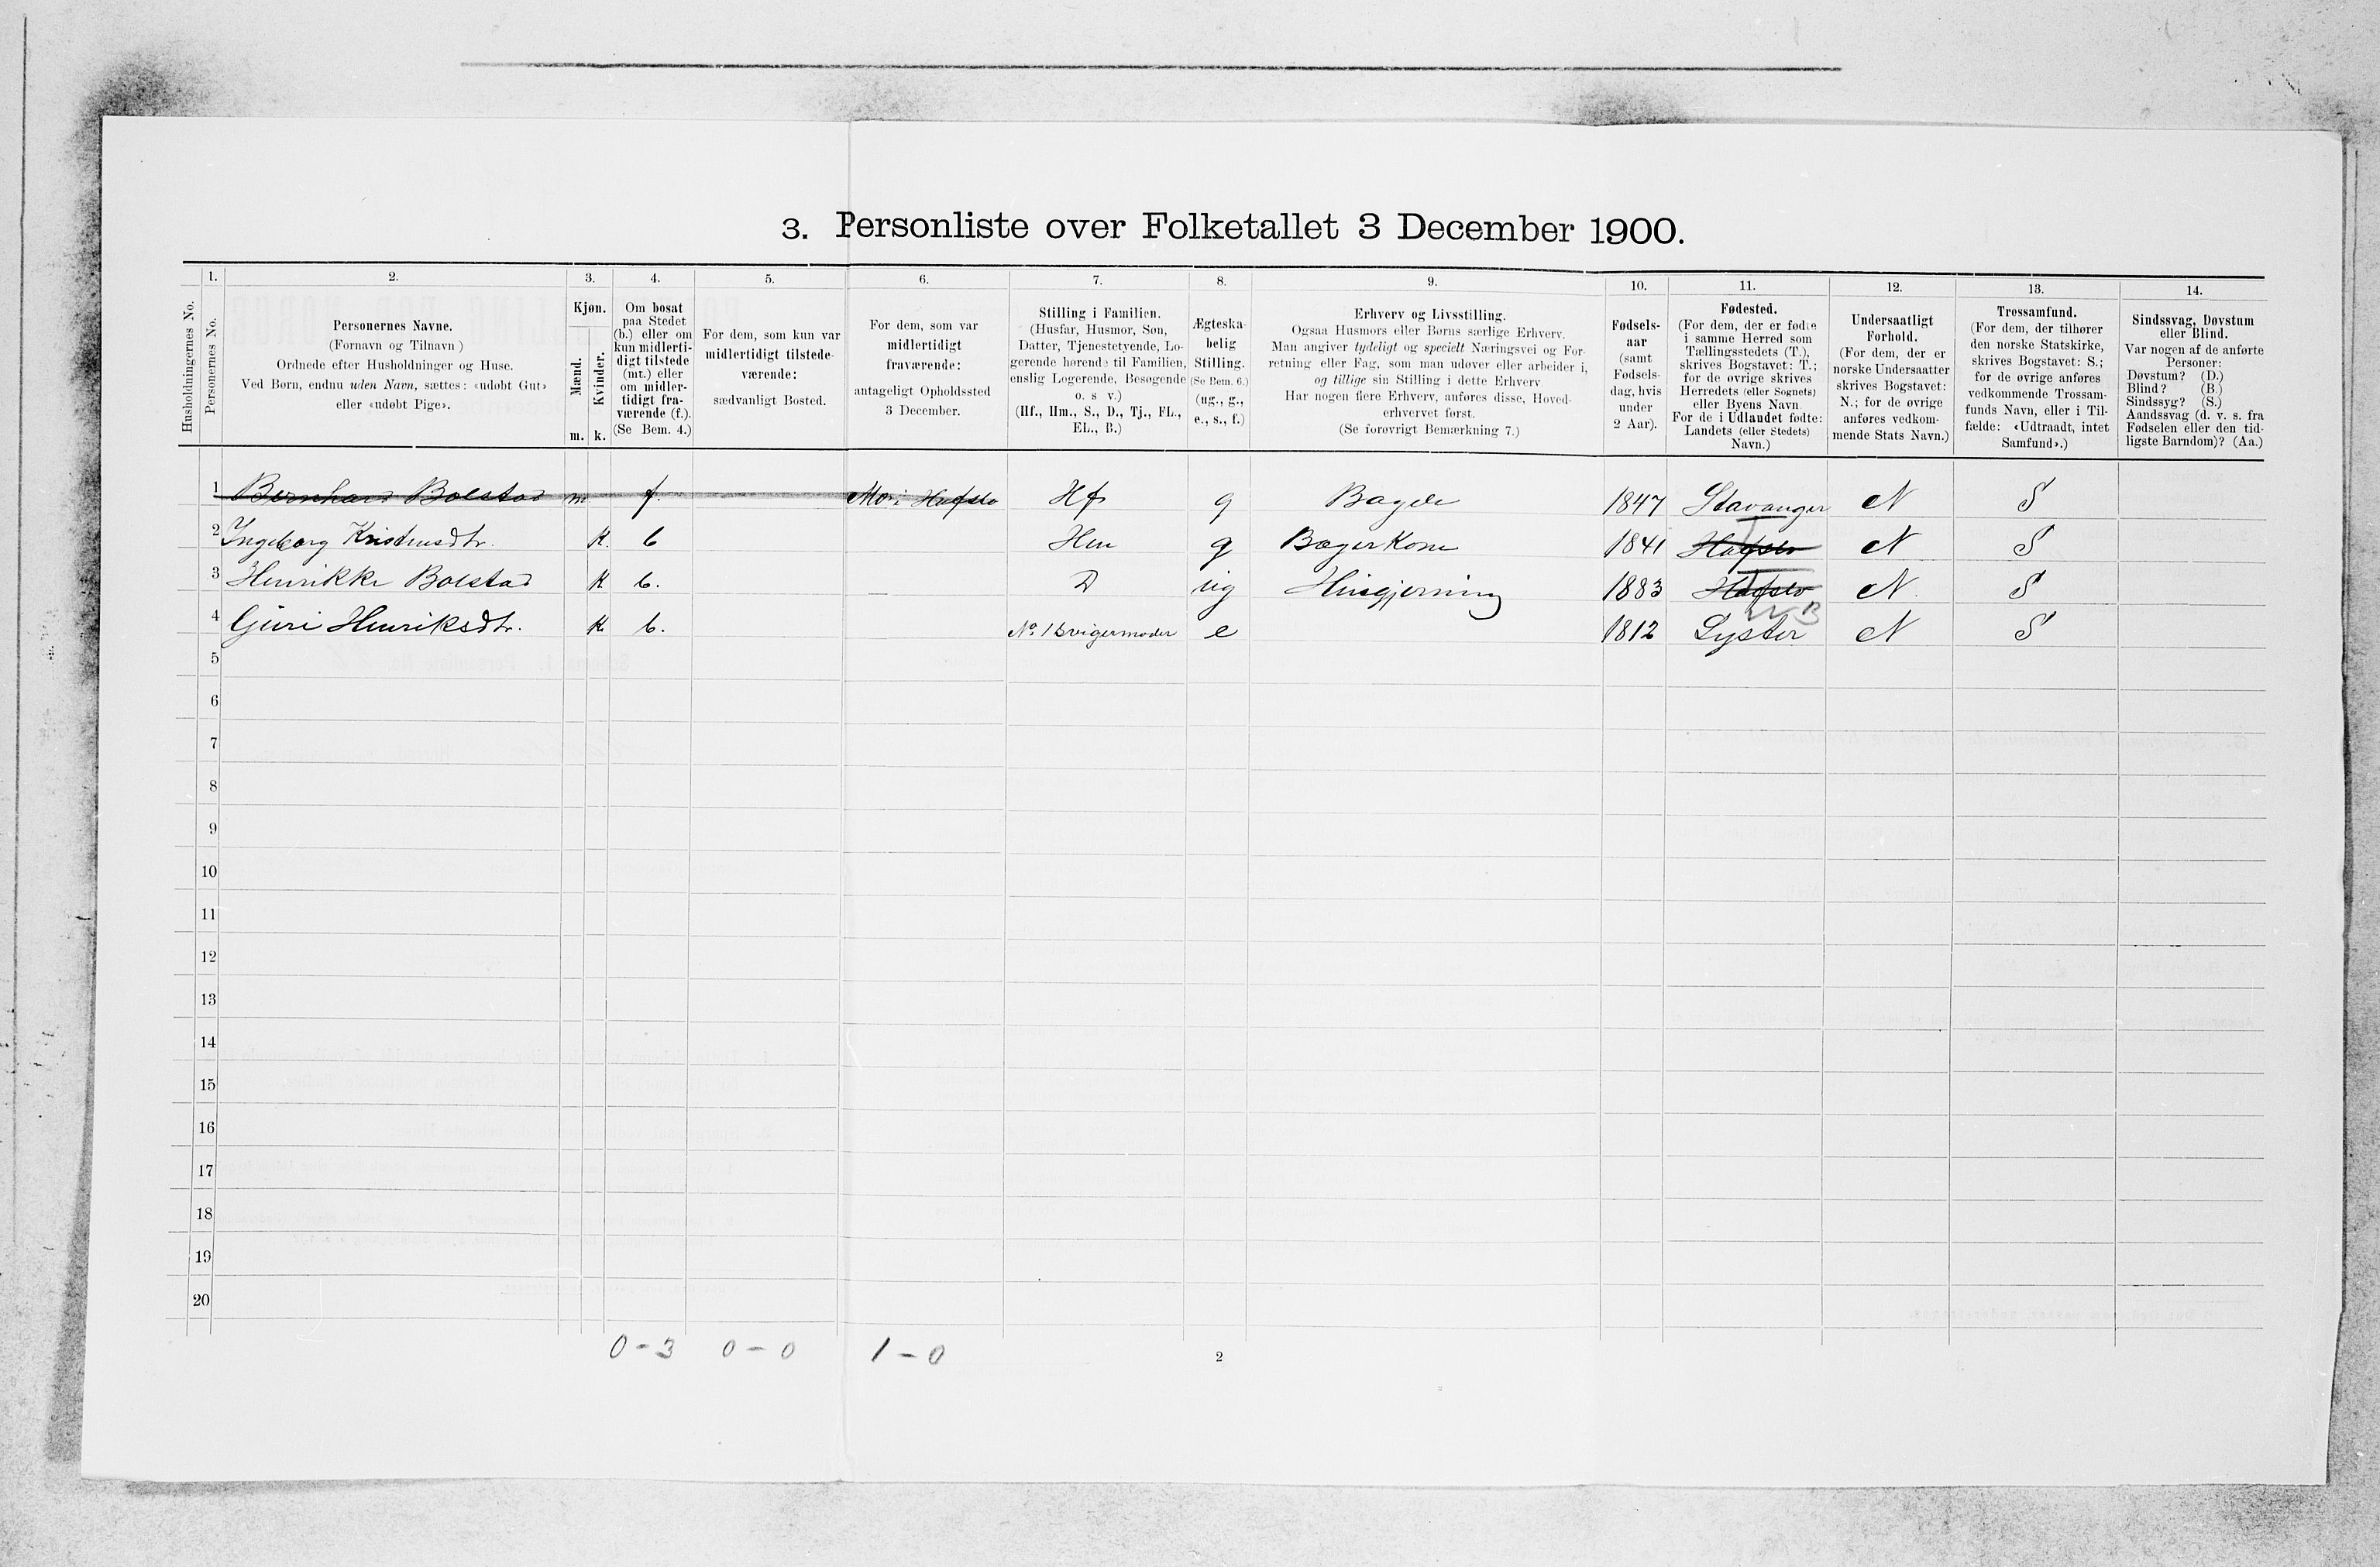 3. Personliste over Folketallet 3 December 1900.
1. 2. 3. 4. 5. 6. 7. 8. 9. 10. 11. 12. 13. 14.
Husholdningernes No.
Personernes No.
Personernes Navne.
(Fornavn og Tilnavn )
Ordnede efter Husholdninger og Huse.
Ved Børn, endnu uden Navn, sættes: «udøbt Gut»
eller «udøbt Pige».
Kjøn.
Mænd.
Kvinder.
m. k.
Om bosat
paa Stedet
(b.) eller om
kun midlerti-
digt tilstede
(mt.) eller
om midler-
tidigt fra-
værende (f.).
(Se Bem. 4.)
For dem, som kun var
midlertidigt tilstede-
værende:
sædvanligt Bosted.
For dem, som var
midlertidigt
fraværende:
antageligt Opholdssted
3 December.
Stilling i Familien.
(Husfar, Husmor, Søn,
Datter, Tjenestetyende, Lo-
gerende hørende til Familien,
enslig Logerende, Besøgende
o. s v.)
(Hf., Hm., S., D., Tj., FL.,
EL., B.)
Ægteska-
belig
Stilling.
(Se Bem. 6.)
(ug., g.,
e., s., f.)
Erhverv og Livsstilling.
Ogsaa Husmors eller Børns særlige Erhverv.
Man angiver tydeligt og specielt Næringsvei og For-
retning eller Fag, som man udøver eller arbeider i,
og tillige sin Stilling i dette Erhverv
Har nogen flere Erhverv, anføres disse, Hoved-
erhvervet først.
(Se forøvrigt Bemærkning 7.)
Fødsels-
aar
(samt
Fødsels-
dag, hvis
under
2 Aar).
Fødested.
(For dem, der er fødte
i samme Herred som
Tællingsstedets (T.),
skrives Bogstavet: T.;
for de øvrige skrives
Herredets (eller Sognets)
eller Byens Navn
For de i Udlandet fødte:
Landets (eller Stedets)
Navn.)
Undersaatligt
Forhold.
(For dem, der er
norske Undersaatter
skrives Bogstavet:
N.; for de øvrige
anføres vedkom-
mende Stats Navn.)
Trossamfund.
(For dem, der tilhører
den norske Statskirke,
skrives Bogstavet: S.;
for de øvrige anføres
vedkommende Trossam-
funds Navn, eller i Til-
fælde: «Udtraadt, intet
Samfund».)
Sindssvag, Døvstum
eller Blind.
Var nogen af de anførte
Personer:
Døvstum? (D.)
Blind? (B.)
Sindssyg? (S.)
Aandssvag (d. v. s. fra
Fødselen eller den tid-
ligste Barndom)? (Aa.)
1 Bernhard Bolstad m f. Mo i Hafslo Hf g Bager 1847 Stavanger N S
2 Ingeborg Kristensdtr. K. b Hm g Bagerkone 1841 Hafslo T N S
3 Henrikke Bolstad K b. D ug Husgjerning 1883 Hafslo T N. S
4 Guri Henriksdtr. K b. No. 1 Svigermoder e 1812 Lyster N S
5
6
7
8
9
10
11
12
13
14
15
16
17
18
19
20
0 - 3 0 - 0 1 - 0
2